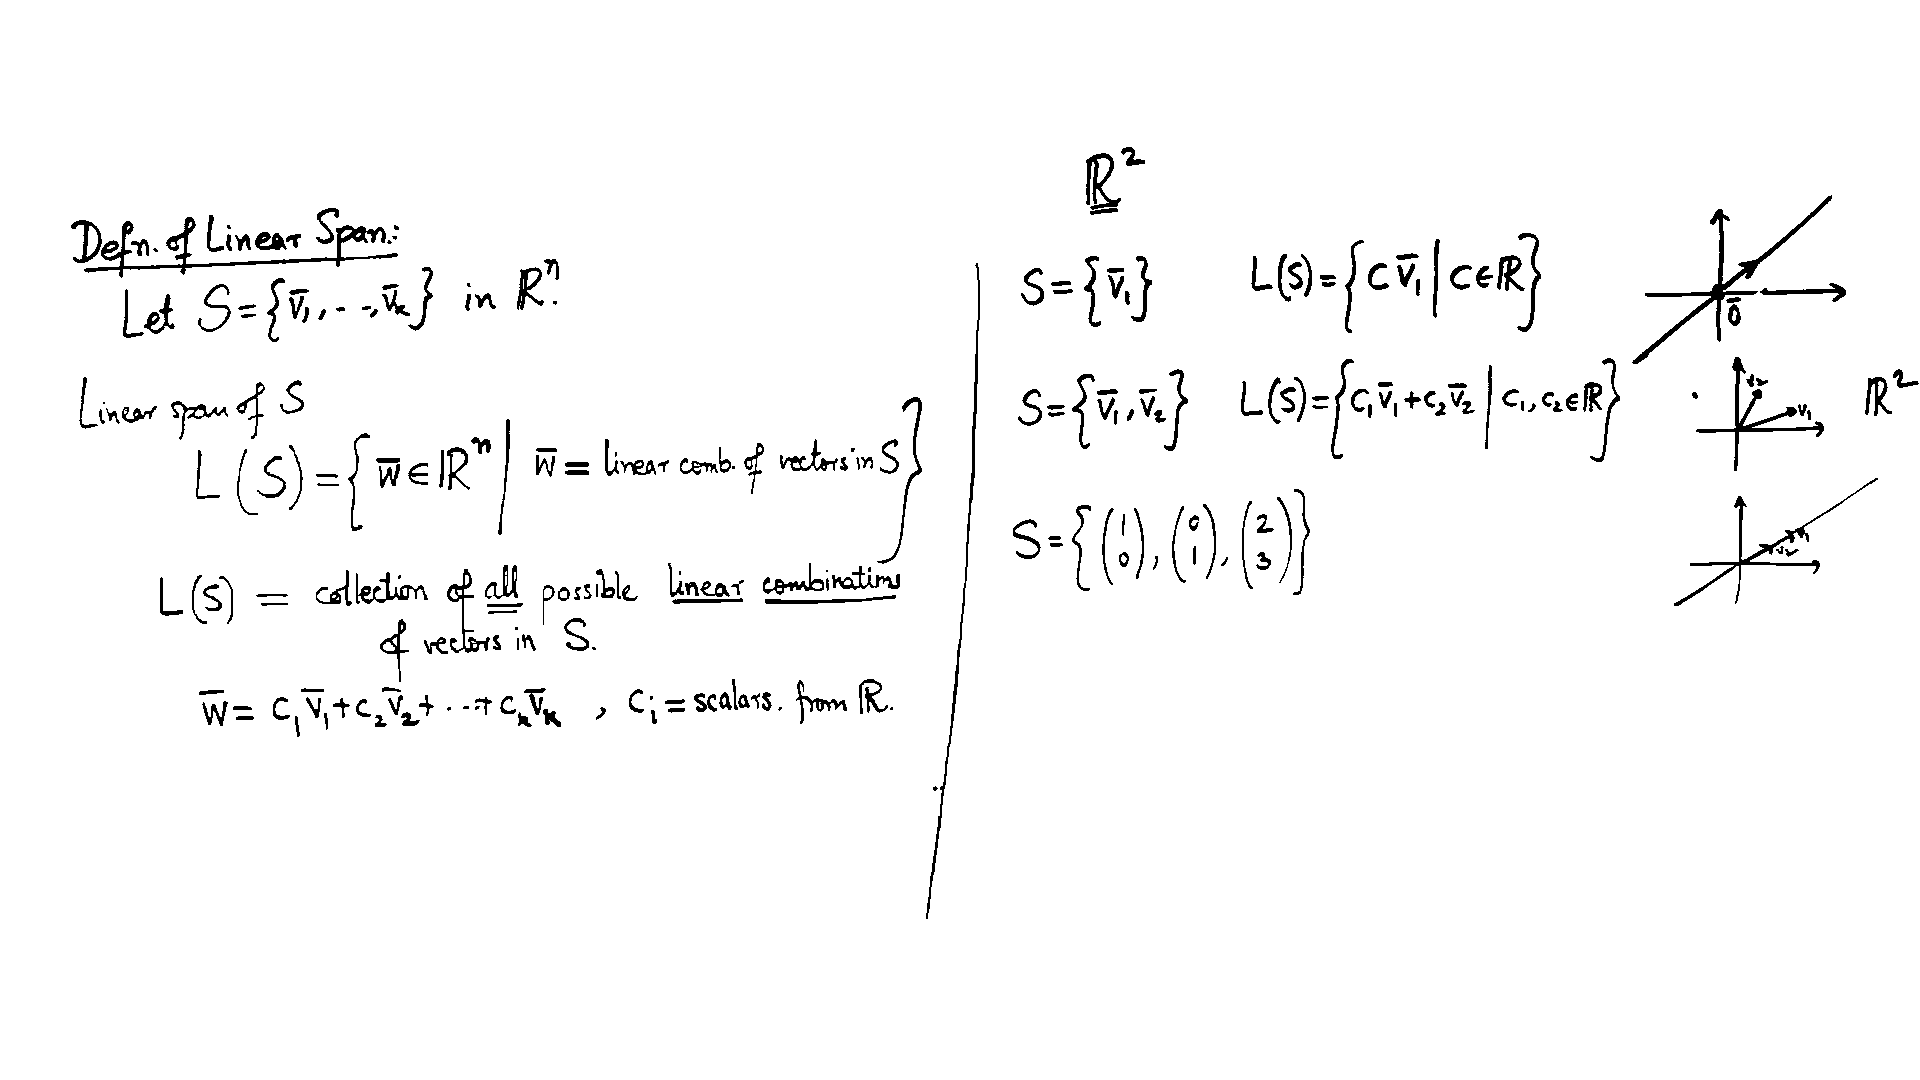 Defn. of Linear Span:
Let S = {v̄₁, . . , v̄ₖ} in ℝⁿ.
Linear span of S
L(S) = { w̄ ∈ ℝⁿ | w̄ = linear comb. of vectors in S }
L(S) = collection of all possible linear combinations
of vectors in S.
w̄ = c₁v̄₁ + c₂v̄₂ + ... + cₖv̄ₖ , cᵢ = scalars. from ℝ.
ℝ²
S = {v̄₁} L(S) = { c v̄₁ | c ∈ ℝ }
0̄
S = {v̄₁, v̄₂} L(S) = { c₁v̄₁ + c₂v̄₂ | c₁, c₂ ∈ ℝ }
v₂
v₁
ℝ²
S = { (1 0), (0 1), (2 3) }
v₂ v₁